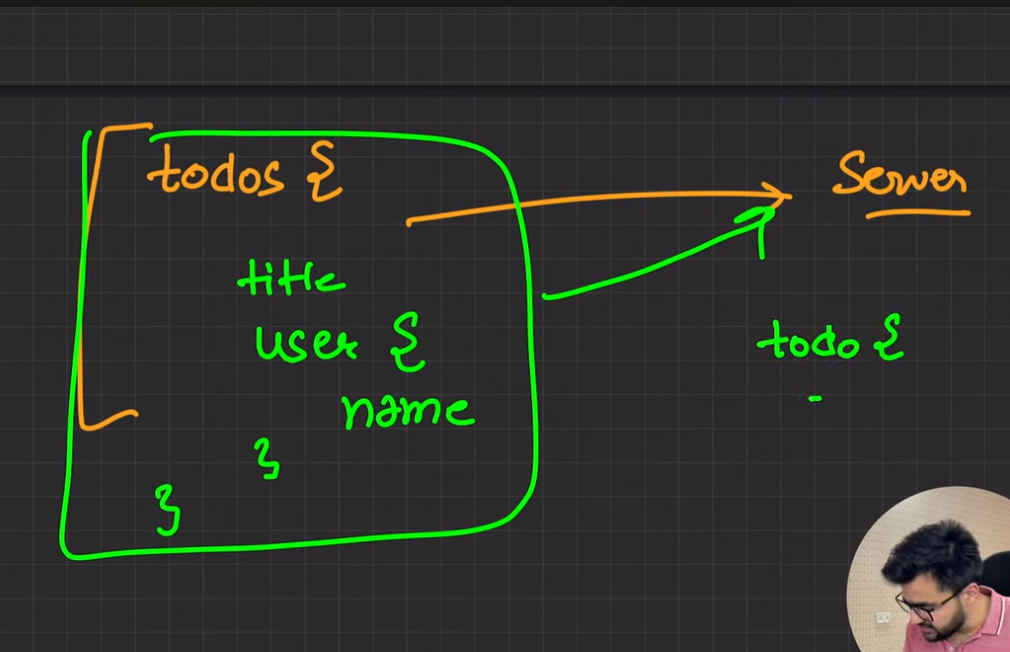 todos {
title
user {
name
}
}
Server
todo {
-